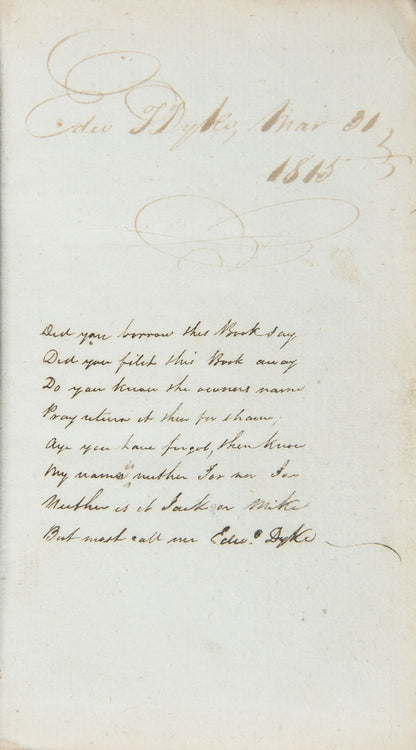 Edw T Dyke, Mar 31
1815
Did you borrow this Book say
Did you filch this Book away
Do you know the owners name
Pray return it then for shame,
Aye you have forgot, then know
My name is neither For nor For
Neither is it Jack or Mike
But most call me Edw.d Dyke